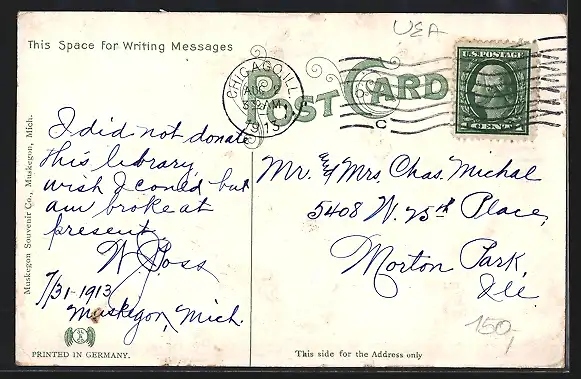 USA
This Space For Writing Messages
POST CARD
CHICAGO, ILL.
AUG
3 30 AM
1913
C
U.S. POSTAGE
1 CENT 1
I did not donate
this library,
wish I could but
am broke at
present.
W. Joss
7/31-1913
Muskegon, Mich.
Mr. & Mrs. Chas. Michal
5408 W. 25th Place,
Morton Park,
Ill.
150,-
Muskegon Souvenir Co., Muskegon, Mich.
PRINTED IN GERMANY.
This side for the Address only